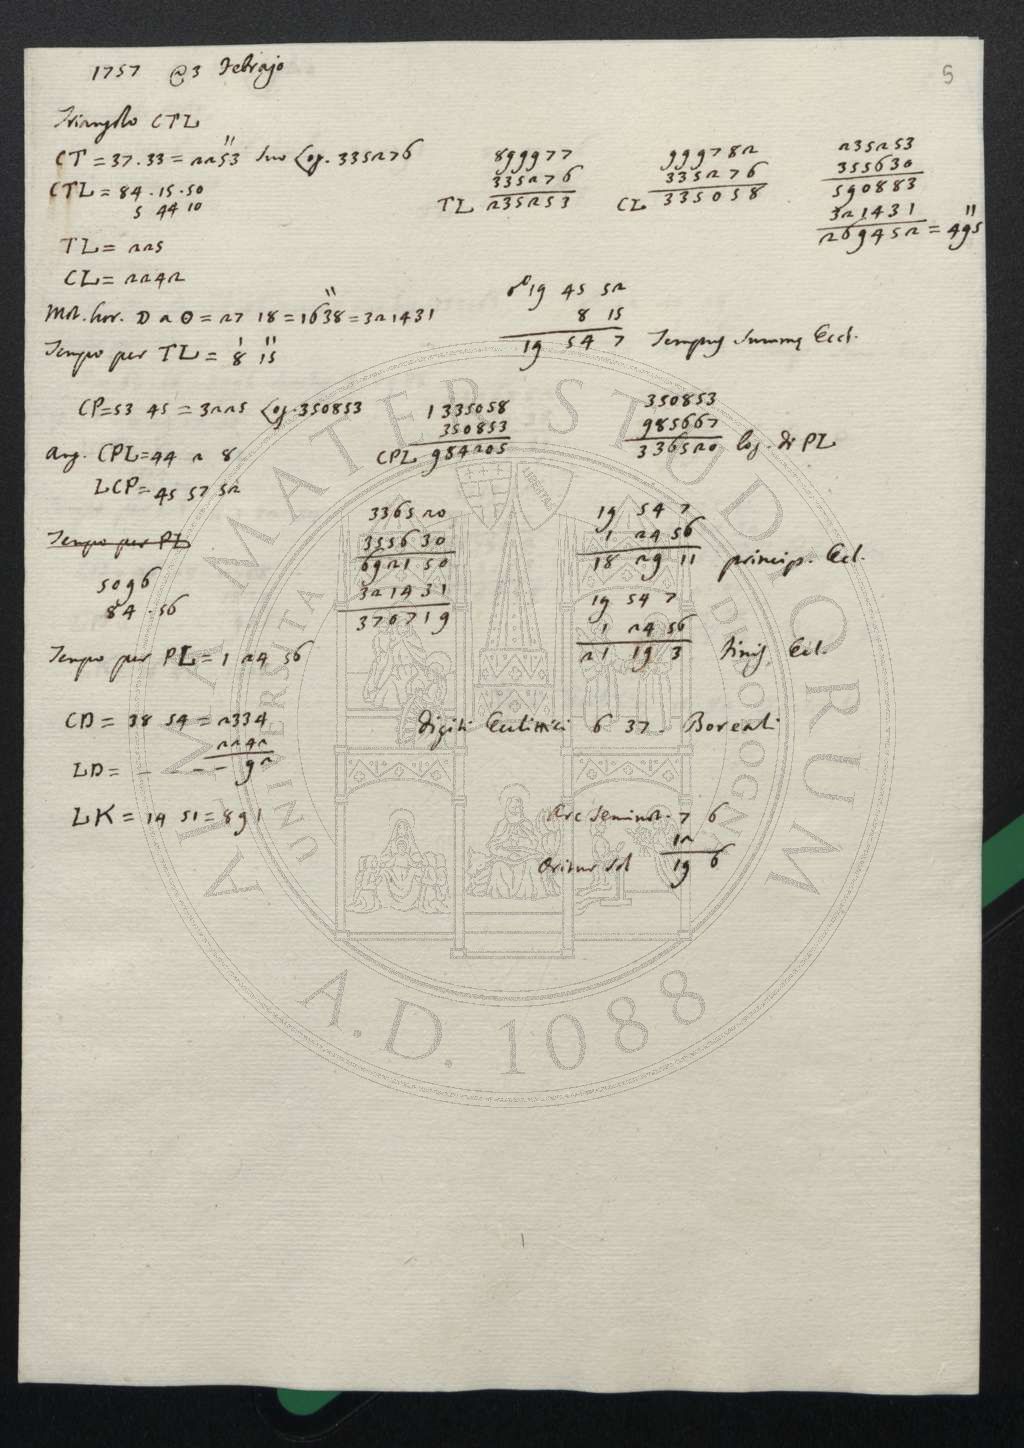 5
1757 @ 3 Febrajo
Triangolo CTL
CT = 37.33 = 2253'' suo Log. 335276
CTL = 84.15.50
5 44 10
TL = 225
CL = 2242
899977
335276
TL 235253
999782
335276
CL 335058
235253
355630
590883
321431
269452 = 495''
Mot. hor. D a O = 27 18 = 1638'' = 321431
Tempo per TL = 8' 15''
19 45 52
8 15
19 54 7 Tempus summæ Ecl.
CP = 53 45 = 3225 Log. 350853
1335058
350853
CPL 984205
350853
985667
336520 log. di PL
Ang. CPL = 44 2 8
LCP = 45 57 52
Tempo per PL
5096
84.56
336520
355630
692150
321431
370719
19 54 7
1 24 56
18 29 11 princip. Ecl.
19 54 7
1 24 56
21 19 3 finis Ecl.
Tempo per PL = 1 24 56
CD = 38 54 = 2334
2242
LD = - - - - - 92
Digiti Ecliptici 6 37 - Boreali
LK = 14 51 = 891
Arc seminot. 7 6
12
Oritur Sol 19 6
ALMA MATER STUDIORUM
UNIVERSITÀ DI BOLOGNA
LIBERTAS
A.D. 1088